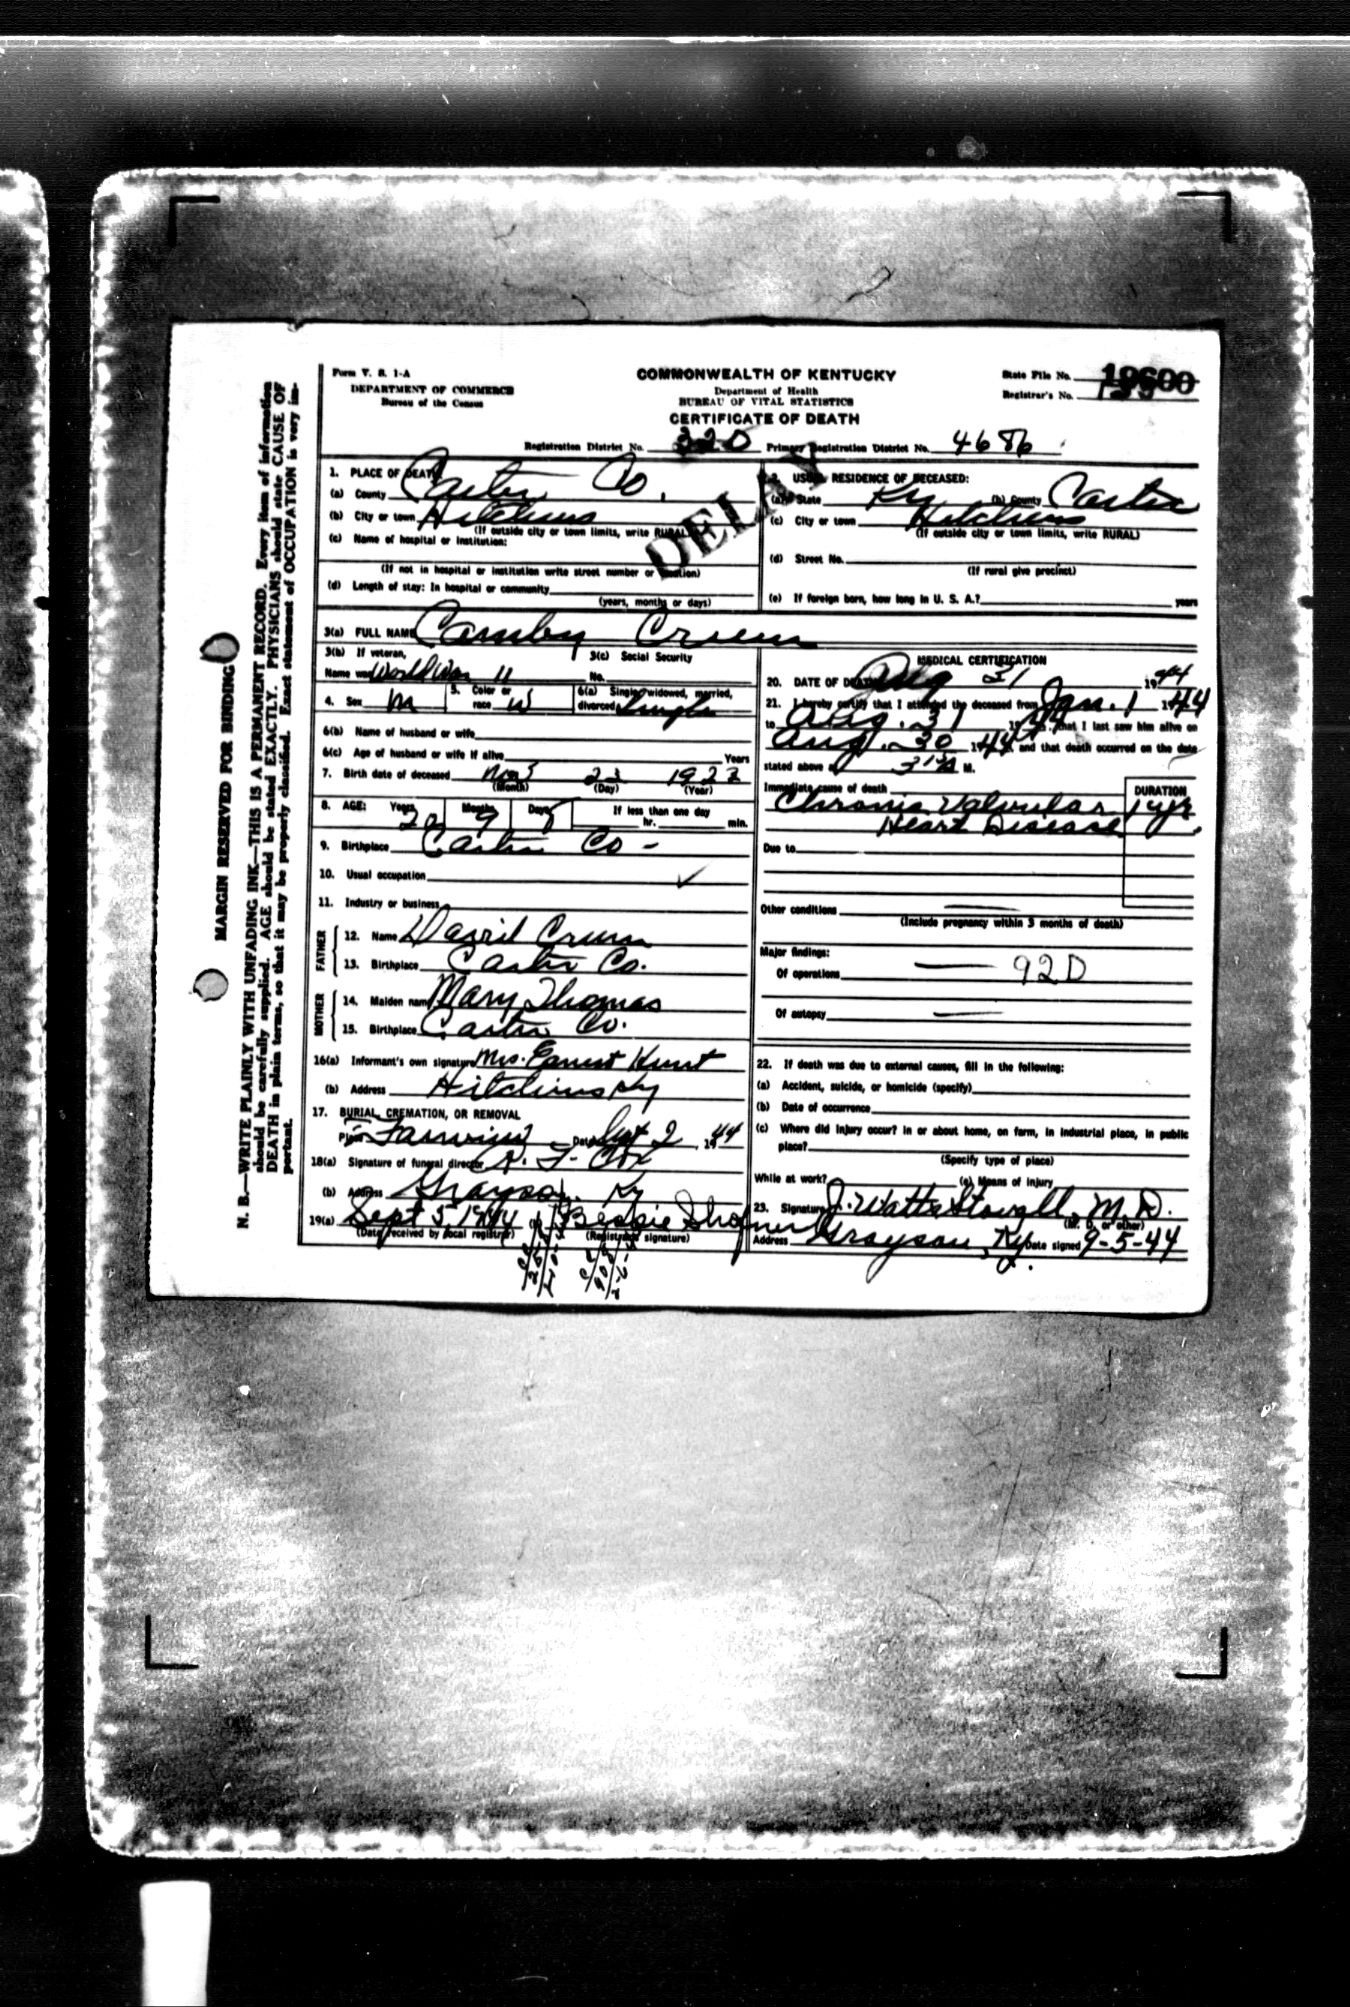 Form V. S. 1-A
DEPARTMENT OF COMMERCE
Bureau of the Census
COMMONWEALTH OF KENTUCKY
Department of Health
BUREAU OF VITAL STATISTICS
CERTIFICATE OF DEATH
State File No. 18600
Registrar's No.
Registration District No. 220 Primary Registration District No. 4686
DELAY
MARGIN RESERVED FOR BINDING
N. B.—WRITE PLAINLY WITH UNFADING INK—THIS IS A PERMANENT RECORD. Every item of information
should be carefully supplied. AGE should be stated EXACTLY. PHYSICIANS should state CAUSE OF
DEATH in plain terms, so that it may be properly classified. Exact statement of OCCUPATION is very im-
portant.
1. PLACE OF DEATH
(a) County Carter Co.
(b) City or town Hitchins
(If outside city or town limits, write RURAL)
(c) Name of hospital or institution:
(If not in hospital or institution write street number or location)
(d) Length of stay: In hospital or community
(years, months or days)
2. USUAL RESIDENCE OF DECEASED:
(a) State Ky (b) County Carter
(c) City or town Hitchins
(If outside city or town limits, write RURAL)
(d) Street No.
(If rural give precinct)
(e) If foreign born, how long in U. S. A.? years
3(a) FULL NAME Camby Crum
3(b) If veteran,
Name war World War II
3(c) Social Security
No.
4. Sex M
5. Color or race W
6(a) Single, widowed, married,
divorced Single
6(b) Name of husband or wife
6(c) Age of husband or wife if alive Years
7. Birth date of deceased Nov 23 1923
(Month) (Day) (Year)
8. AGE: Years Months Days If less than one day
20 9 hr. min.
9. Birthplace Carter Co -
10. Usual occupation ✓
11. Industry or business
FATHER
12. Name David Crum
13. Birthplace Carter Co.
MOTHER
14. Maiden name Mary Thomas
15. Birthplace Carter Co.
16(a) Informant's own signature Mrs. Earnest Hunt
(b) Address Hitchins Ky
17. BURIAL, CREMATION, OR REMOVAL
Place Date Sept 2, 1944
18(a) Signature of funeral director Cox
(b) Address Grayson Ky
19(a) Sept 5, 1944 Bessie Shofner
(Date received by local registrar) (Registrar's signature)
MEDICAL CERTIFICATION
20. DATE OF DEATH Aug 31 1944
21. I hereby certify that I attended the deceased from Jan. 1 1944
to Aug. 31 1944, that I last saw him alive on
Aug. 30 1944, and that death occurred on the date
stated above at M.
Immediate cause of death DURATION
Chronic Valvular 1 yr.
Heart Disease
Due to
Other conditions —
(Include pregnancy within 3 months of death)
Major findings:
Of operations — 92D
Of autopsy —
22. If death was due to external causes, fill in the following:
(a) Accident, suicide, or homicide (specify)
(b) Date of occurrence
(c) Where did injury occur? In or about home, on farm, in industrial place, in public
place?
(Specify type of place)
While at work? (e) Means of injury
23. Signature J. Watts Stovall, M.D.
(M. D. or other)
Address Grayson, Ky. Date signed 9-5-44